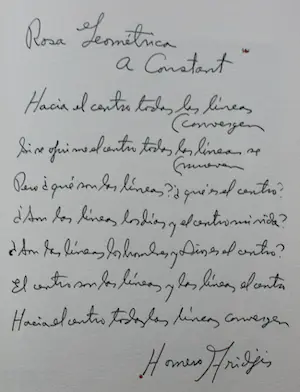 Rosa Geométrica
A Constant
Hacia el centro todas las líneas
convergen
Si se oprime el centro todas las líneas se
mueven
Pero ¿qué son las líneas? ¿qué es el centro?
¿Son las líneas los días y el centro mi vida?
¿Son las líneas los hombres y Dios es el centro?
El centro son las líneas y las líneas el centro
Hacia el centro todas las líneas convergen
Homero Aridjis